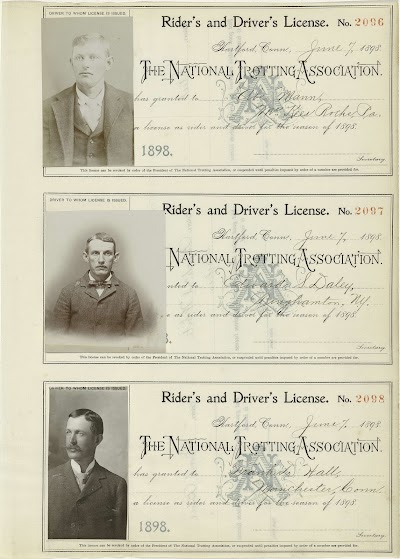 DRIVER TO WHOM LICENSE IS ISSUED.
Rider's and Driver's License. No. 2096
Hartford, Conn., June 7, 1898
THE NATIONAL TROTTING ASSOCIATION.
has granted to Mann,
McKees Rocks, Pa.
a license as rider and driver for the season of 1898.
1898.
Secretary.
This license can be revoked by order of the President of The National Trotting Association, or suspended until penalties imposed by order of a member are provided for.
DRIVER TO WHOM LICENSE IS ISSUED.
Rider's and Driver's License. No. 2097
Hartford, Conn., June 7, 1898
NATIONAL TROTTING ASSOCIATION.
nted to Edward S. Daley,
Binghamton, N.Y.
as rider and driver for the season of 1898
Secretary.
This license can be revoked by order of the President of The National Trotting Association, or suspended until penalties imposed by order of a member are provided for.
DRIVER TO WHOM LICENSE IS ISSUED.
Rider's and Driver's License. No. 2098
Hartford, Conn., June 7, 1898
THE NATIONAL TROTTING ASSOCIATION.
has granted to Hall,
Manchester, Conn
a license as rider and driver for the season of 1898
1898.
Secretary.
This license can be revoked by order of the President of The National Trotting Association, or suspended until penalties imposed by order of a member are provided for.